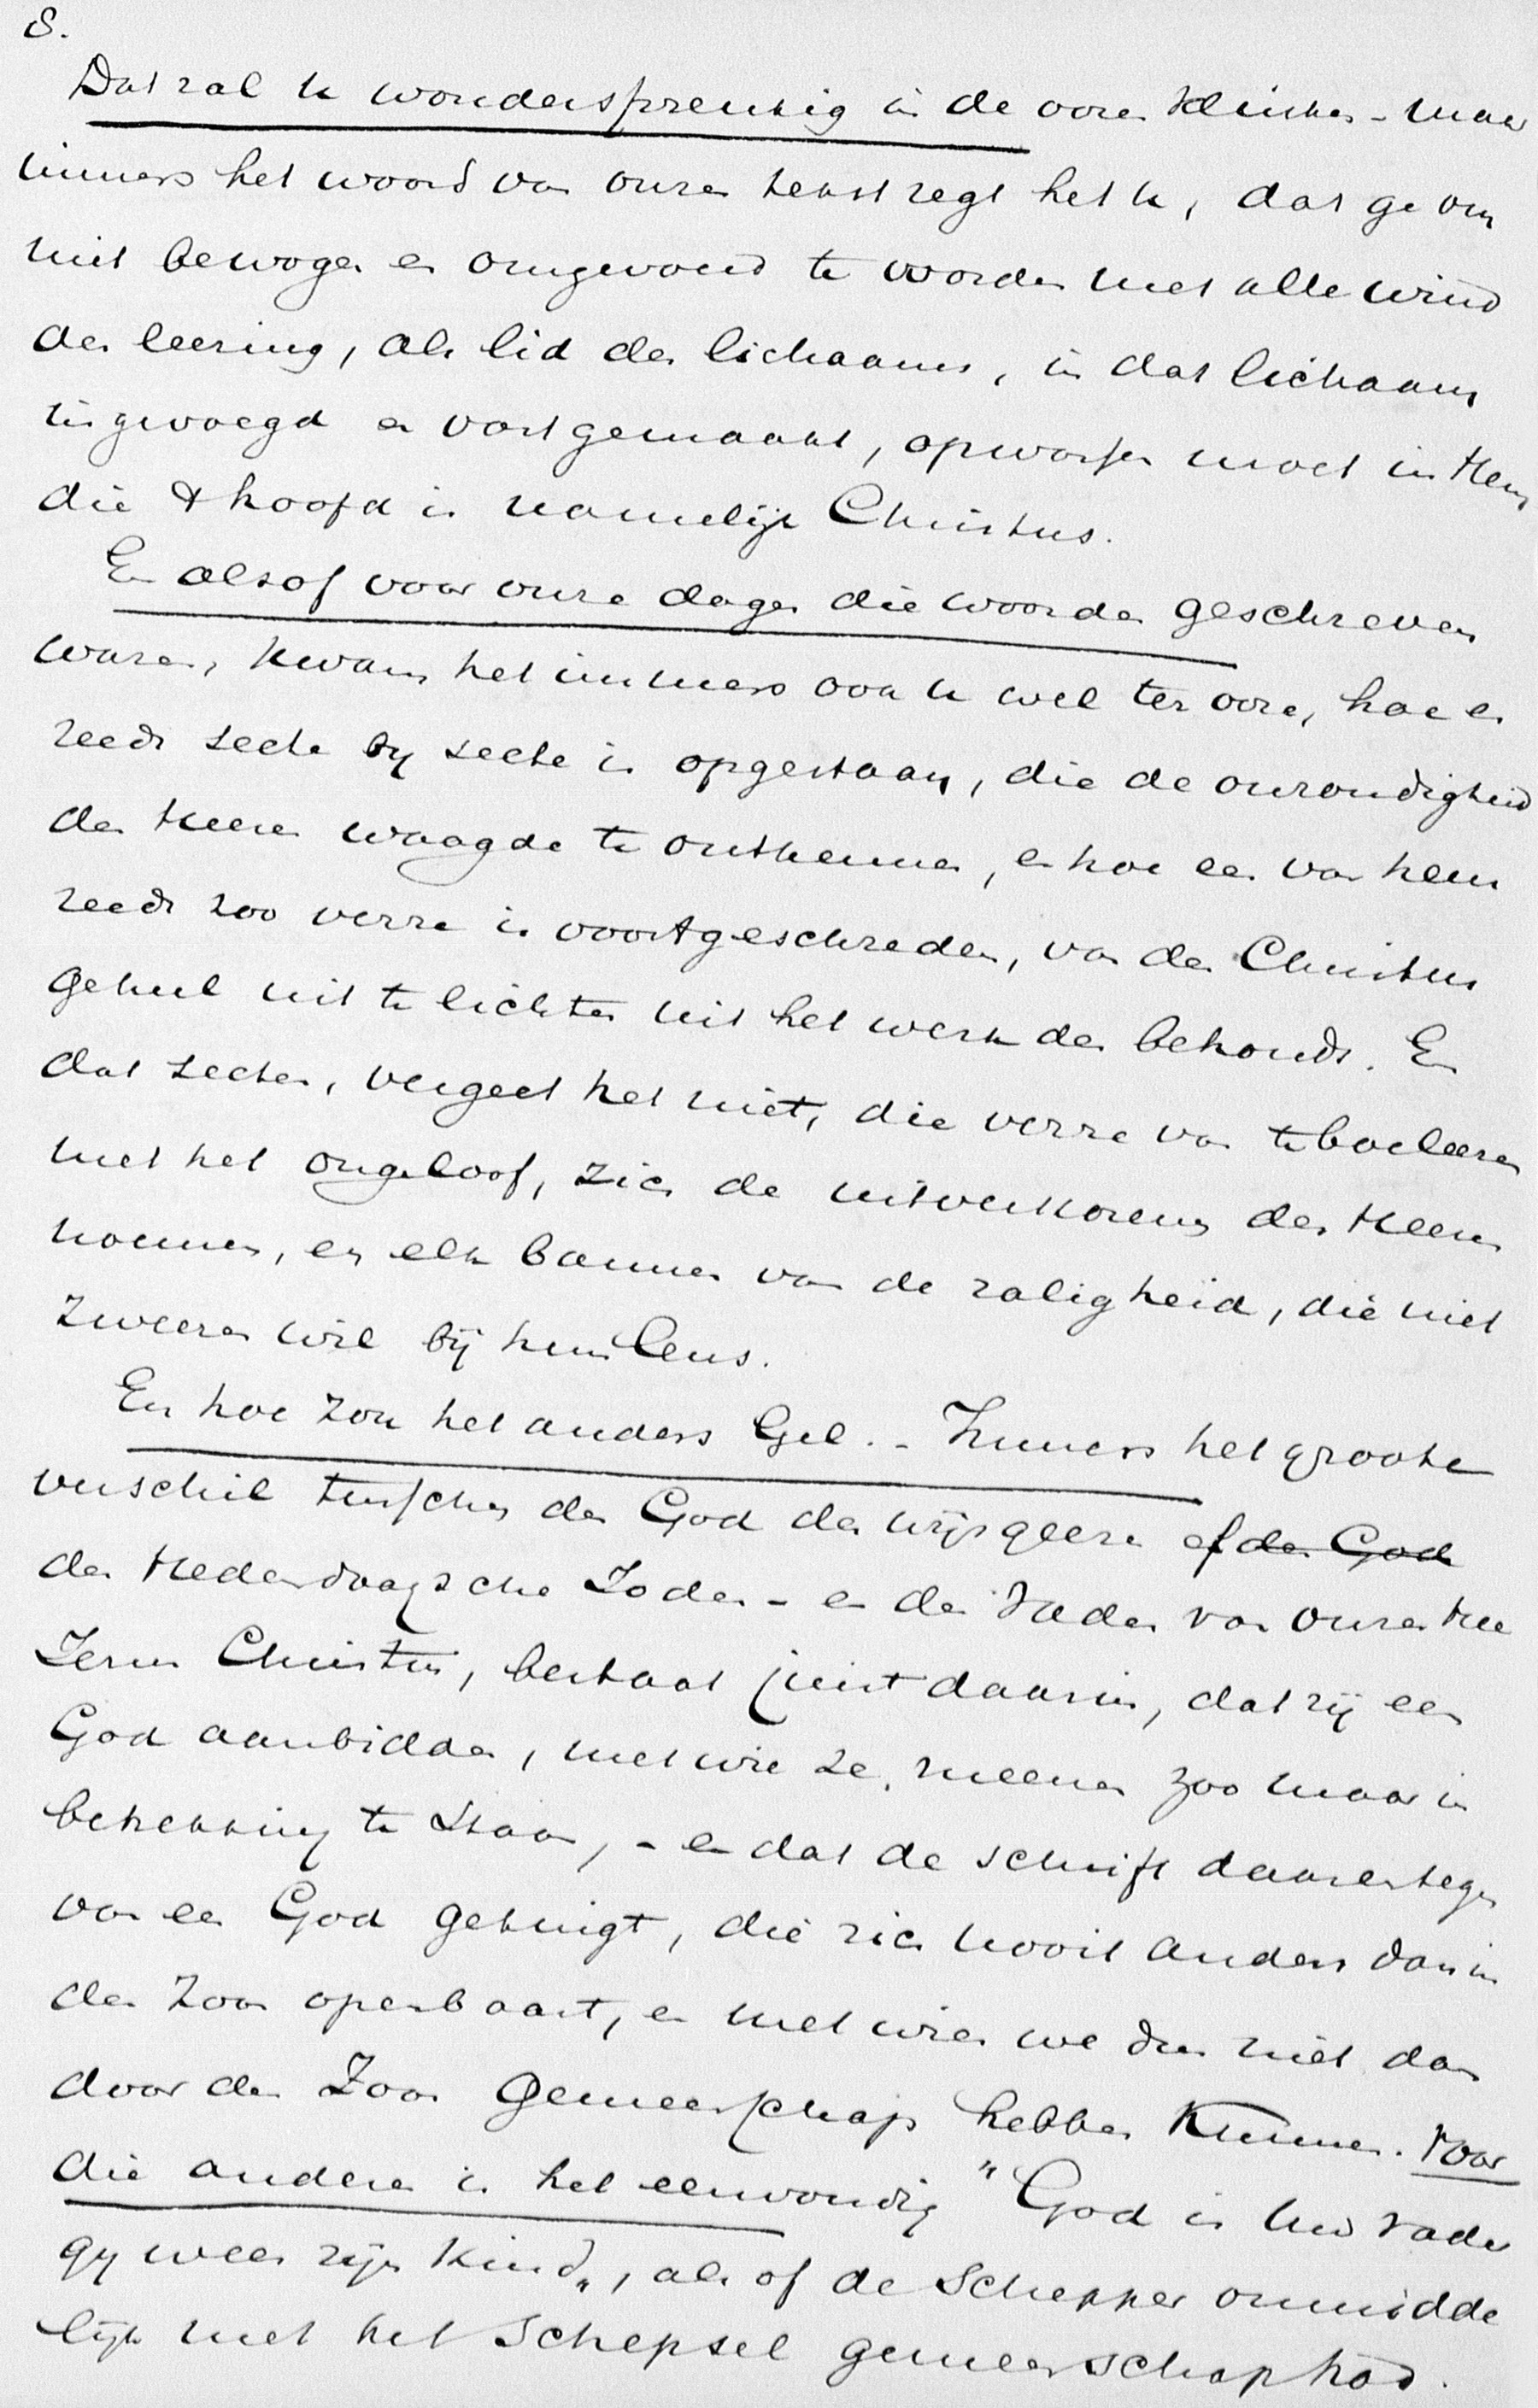 8.
Dat zal u wonderspreukig in de ooren klinken - maar
immers het woord van onzen tekst zegt het u, dat ge om
niet bewogen en omgevoerd te worden met alle wind
der leering, als lid des lichaams, in dat lichaam
ingevoegd en vastgemaakt, opwassen moet in Hem
die 't hoofd is namelijk Christus.
En alsof voor onze dagen die woorden geschreven
waren, kwam het immers ook u wel ter oore, hoe er
reeds secte by secte is opgestaan, die de onzondigheid
des Heeren waagde te ontkennen, en hoe een van hen
reeds zoo verre is voortgeschreden, van den Christus
geheel uit te lichten uit het werk des behouds. En
dat secten, vergeet het niet, die verre van te boeleeren
met het ongeloof, zich de uitverkorenen des Heeren
noemen, en elk bannen van de zaligheid, die niet
zweeren wil bij hun leus.
En hoe zou het anders Gel. - Immers het groote
verschil tusschen den God der wijsgeeren of den God
der Hedendaagsche Joden - en den Vader van onzen Hee
Jezus Christus, bestaat juist daarin, dat zij een
God aanbidden, met wie ze meenen zoo maar in
betrekking te staan, - en dat de schrift daarentegen
van een God getuigt, die zich nooit anders dan in
den Zoon openbaart, en met wien we dus niet dan
door den Zoon gemeenschap hebben kunnen. Voor
die anderen is het eenvoudig "God is uw vader
gy weer zijn kind„, als of de Schepper onmidde
lijk met het Schepsel gemeenschap had.